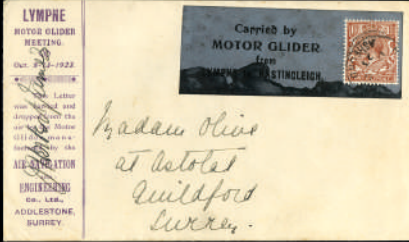 LYMPNE
MOTOR GLIDER
MEETING.
Oct. 1923.
Letter
was carried and
dropped from the
air Motor
Glider
by the
AIR NAVIGATION
ENGINEERING
CO., LTD.,
ADDLESTONE,
SURREY.
Carried by
MOTOR GLIDER
from
LYMPNE HASTINGLEIGH.
Madam Olive
at Astolat
Guildford
Surrey.